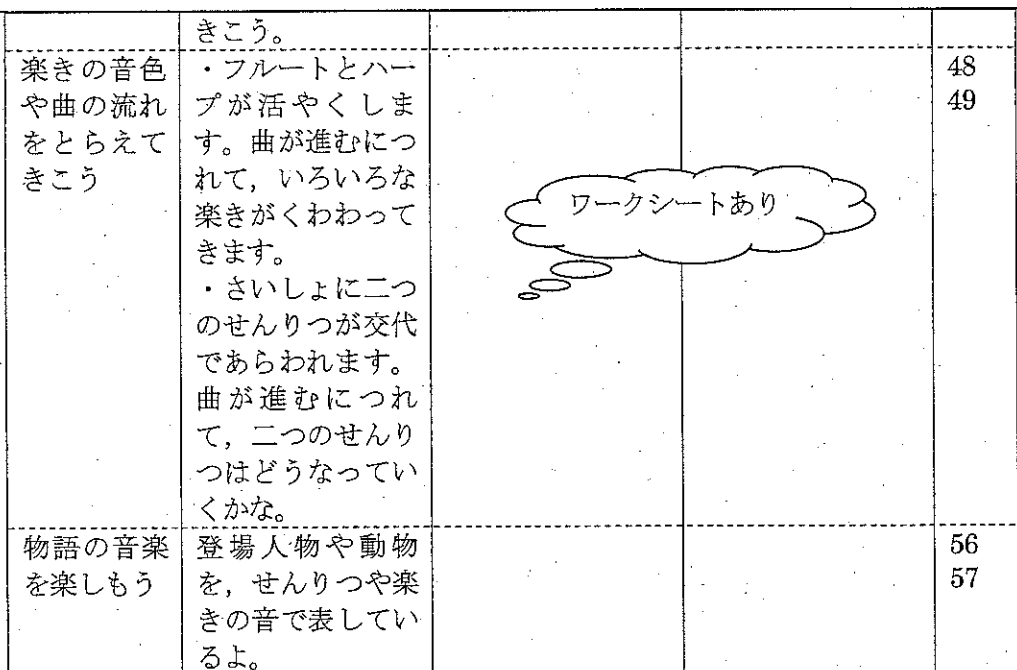 きこう。
楽きの音色
や曲の流れ
をとらえて
きこう
・フルートとハー
プが活やくしま
す。曲が進むにつ
れて，いろいろな
楽きがくわわって
きます。
・さいしょに二つ
のせんりつが交代
であらわれます。
曲が進むにつれ
て，二つのせんり
つはどうなってい
くかな。
ワークシートあり
48
49
物語の音楽
を楽しもう
登場人物や動物
を，せんりつや楽
きの音で表してい
るよ。
56
57